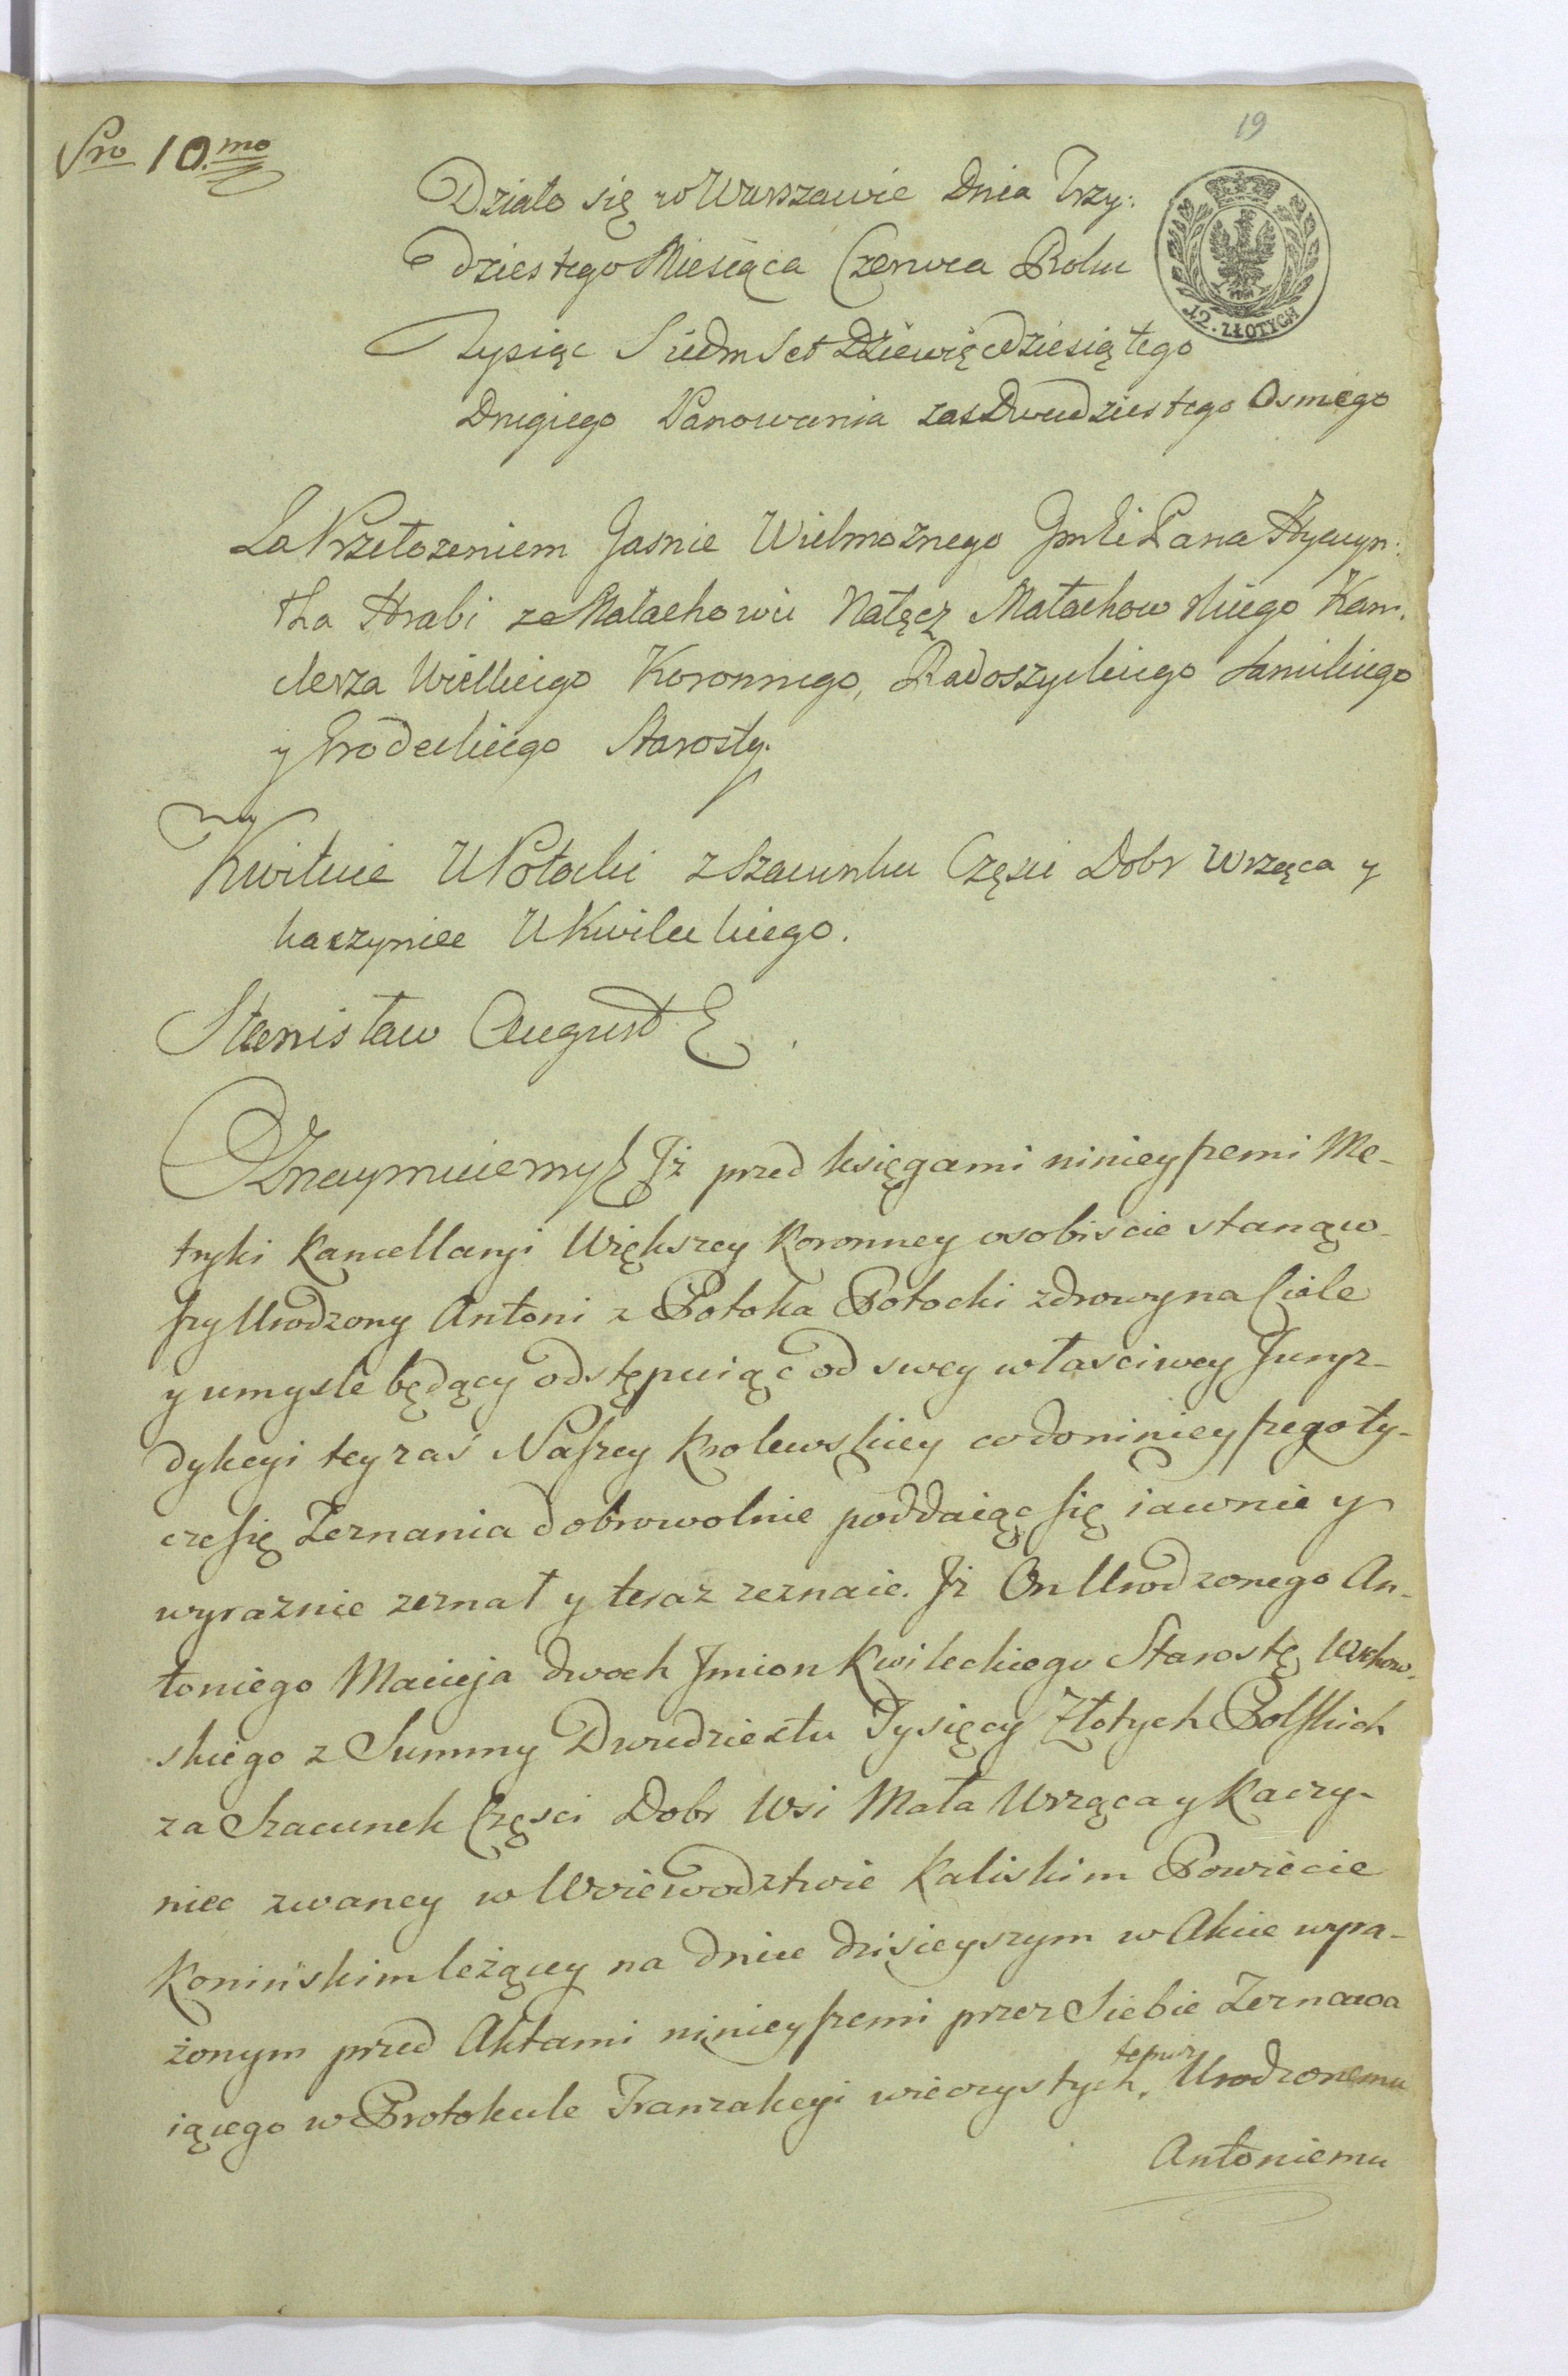 19
Pro 10.mo
Działo się w Warszawie Dnia Trzy:
dziestego Miesiąca Czerwca Roku
12. ZŁOTYCH
Tysiąc Siedmset Dziewięcdziesiątego
Drugiego Panowania zas Dwudziestego Osmego
Za Przełozeniem Jasnie Wielmoznego Jmći Pana Hyacyn:
tha Hrabi ze Małachowic Nałęcz Małachowskiego Kan:
clerza Wielkiego Koronnego, Radoszyckiego Sanickiego
y Grodeckiego Starosty.
Kwituie U Potocki z Szacunku Częsci Dobr Wrząca y
kaczyniec U Kwileckiego.
Stanisław August &
Oznaymuiemy & Jż przed księgami ninieyszemi Me-
tryki Kancellaryi Większey Koronney osobiscie stanąw-
szy Urodzony Antoni z Potoka Potocki zdrowy na Ciele
y umysle będący odstępuiąc od swey własciwey Juryz-
dykcyi tey zaś Naszey Krolewskiey co do ninieyszego ty-
cze się Zeznania dobrowolnie poddaiąc się iawnie y
wyraznie zeznał y teraz zeznaie. Jż On Urodzonego An-
toniego Macieja dwoch Jmion Kwileckiego Starostę Wschow-
skiego z Summy Dwudziestu Tysięcy Złotych Polskich
za Szacunek Częsci Dobr Wsi Mała Wrząca y Kaczy-
niec zwaney w Woiewodztwie Kaliskim Powiecie
Konińskim leżącey na dniu dzisieyszym w Akcie wyra-
żonym przed Aktami ninieyszemi przez Siebie Zeznawa
iącego w Protokule Tranzakcyi wieczystych, temuz Urodzonemu
Antoniemu